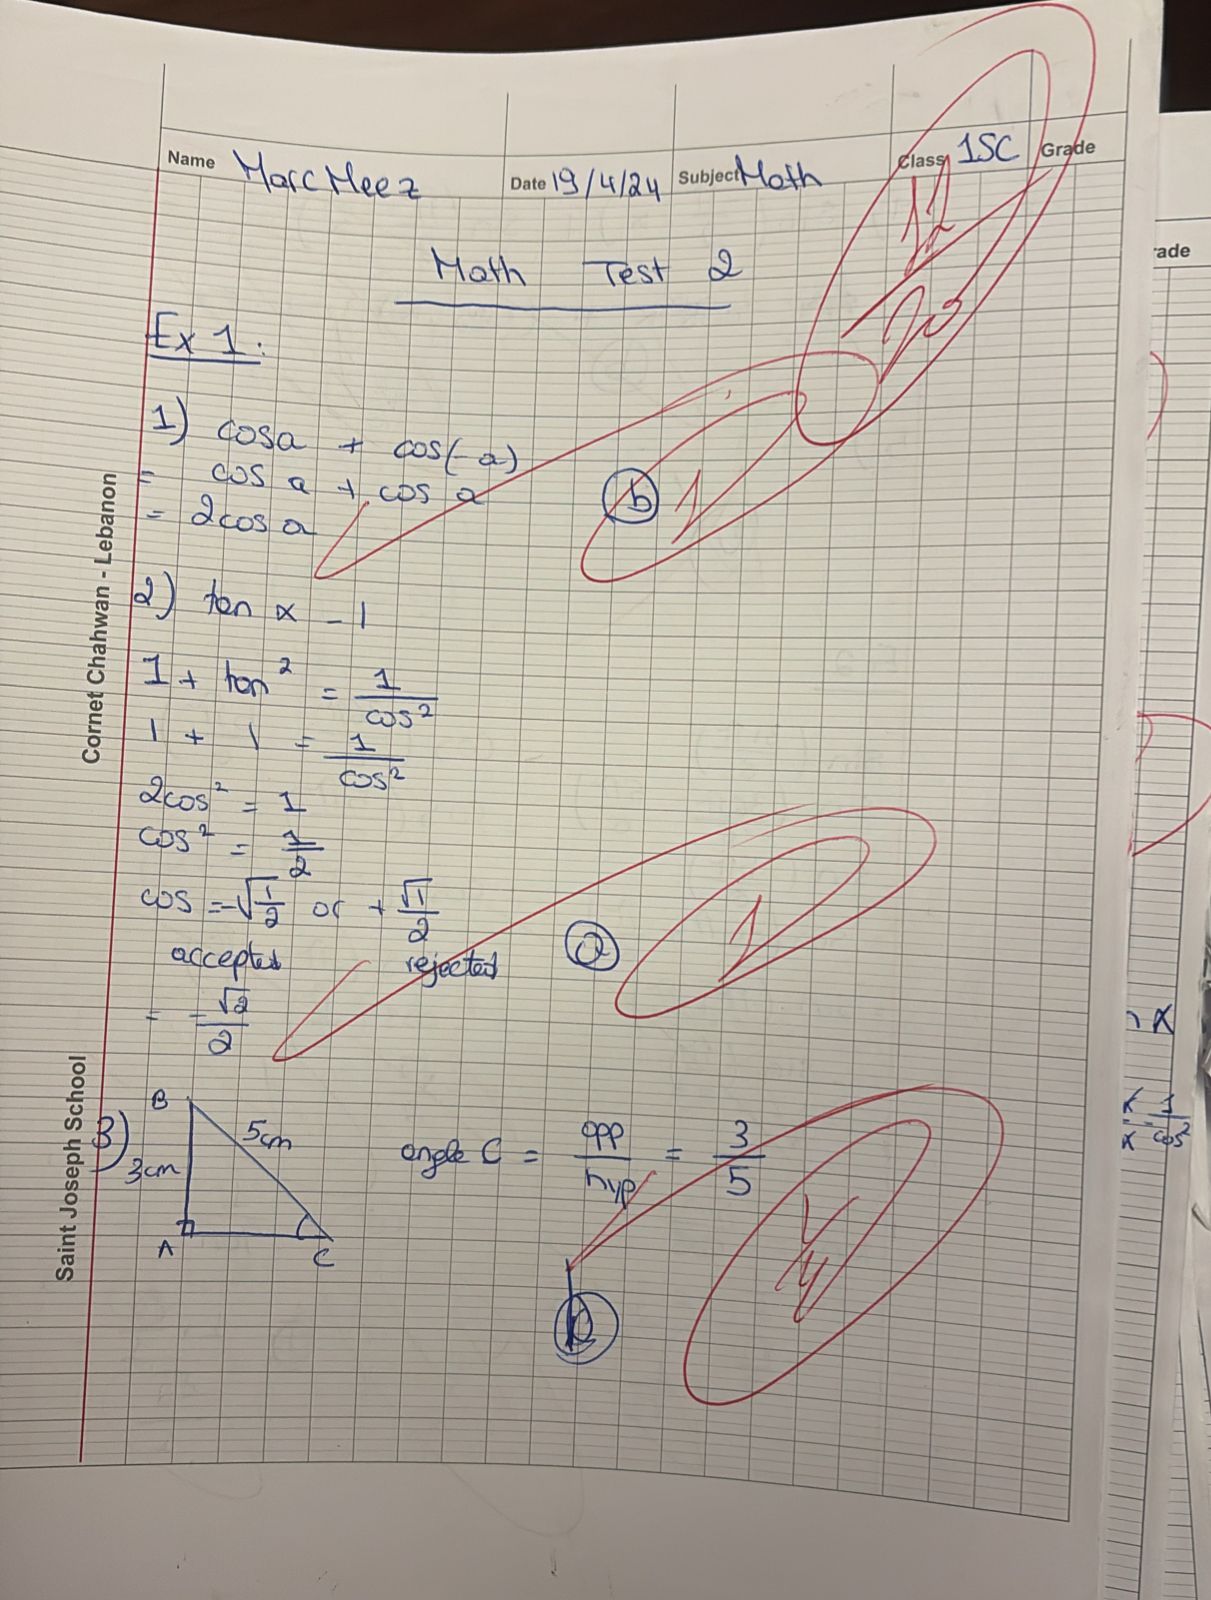 Name Marc Meez Date 19/4/24 Subject Math Class 1SC Grade
12
20
rade
Math Test 2
Ex 1:
1) cosa + cos(-a)
= cos a + cos a
= 2cos a
b 1
2) tan x - 1
1 + tan² = 1/cos²
1 + 1 = 1/cos²
2cos² = 1
cos² = 1/2
cos = -√1/2 or + √1/2
accepted rejected
a 1
= -√2/2
3) B
5cm
3cm
A C
angle C = opp/hyp = 3/5
Cornet Chahwan - Lebanon
Saint Joseph School
x
1
cos²